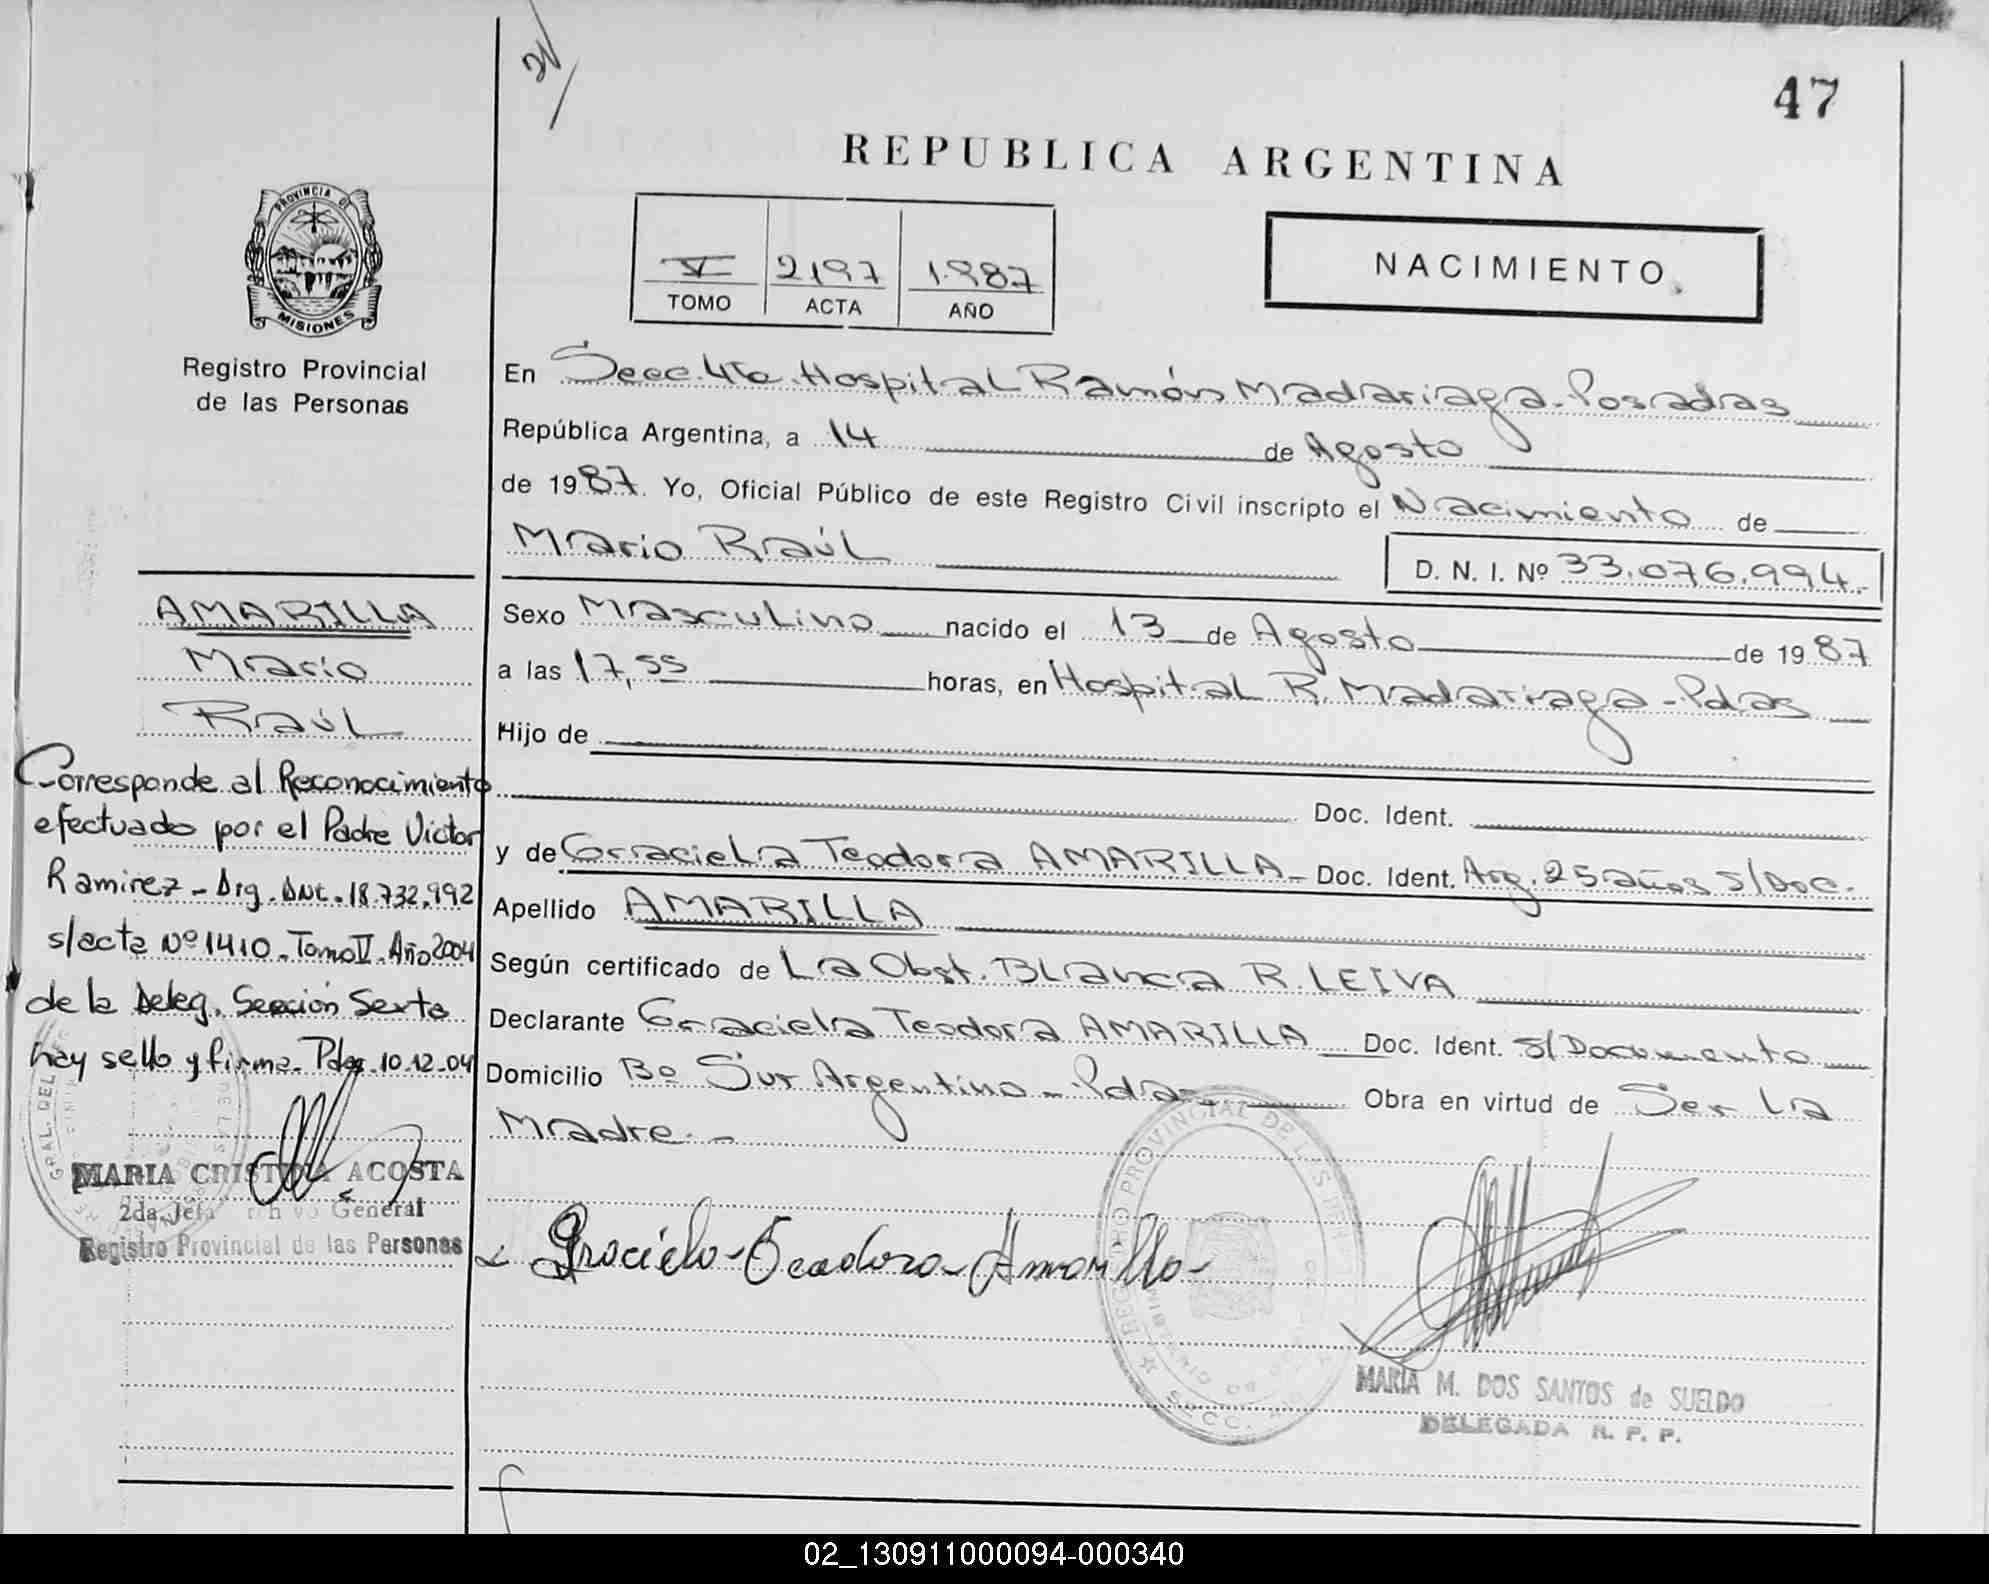 47
REPUBLICA ARGENTINA
PROVINCIA DE
MISIONES
Registro Provincial
de las Personas
V 2197 1.987
TOMO ACTA AÑO
NACIMIENTO
En Secc. 4ta. Hospital Ramón Madariaga - Posadas
República Argentina, a 14 de Agosto
de 1987. Yo, Oficial Público de este Registro Civil inscripto el Nacimiento de
Mario Raúl
D. N. I. Nº 33.076.994.-
AMARILLA
Mario
Raúl
Corresponde al Reconocimiento
efectuado por el Padre Victor
Ramirez - Arg. DNI. 18.732.992
s/acta Nº 1410 - Tomo V - Año 2004
de la Deleg. Sección Sexta
hay sello y firma - Pdas. 10-12-04
MARIA CRISTINA ACOSTA
2da. Jefa General
Registro Provincial de las Personas
Sexo Masculino nacido el 13 de Agosto de 1987
a las 17,55 horas, en Hospital R. Madariaga - Pdas
Hijo de
Doc. Ident.
y de Graciela Teodora AMARILLA - Doc. Ident. Arg. 25 años s/Doc.
Apellido AMARILLA
Según certificado de La Obst. Blanca R. LEIVA
Declarante Graciela Teodora AMARILLA Doc. Ident. s/Documento
Domicilio Bº Sur Argentino - Pdas Obra en virtud de Ser La
Madre. -
Graciela - Teodora - Amarilla -
MARIA M. DOS SANTOS de SUELDO
DELEGADA R. P. P.
02_130911000094-000340